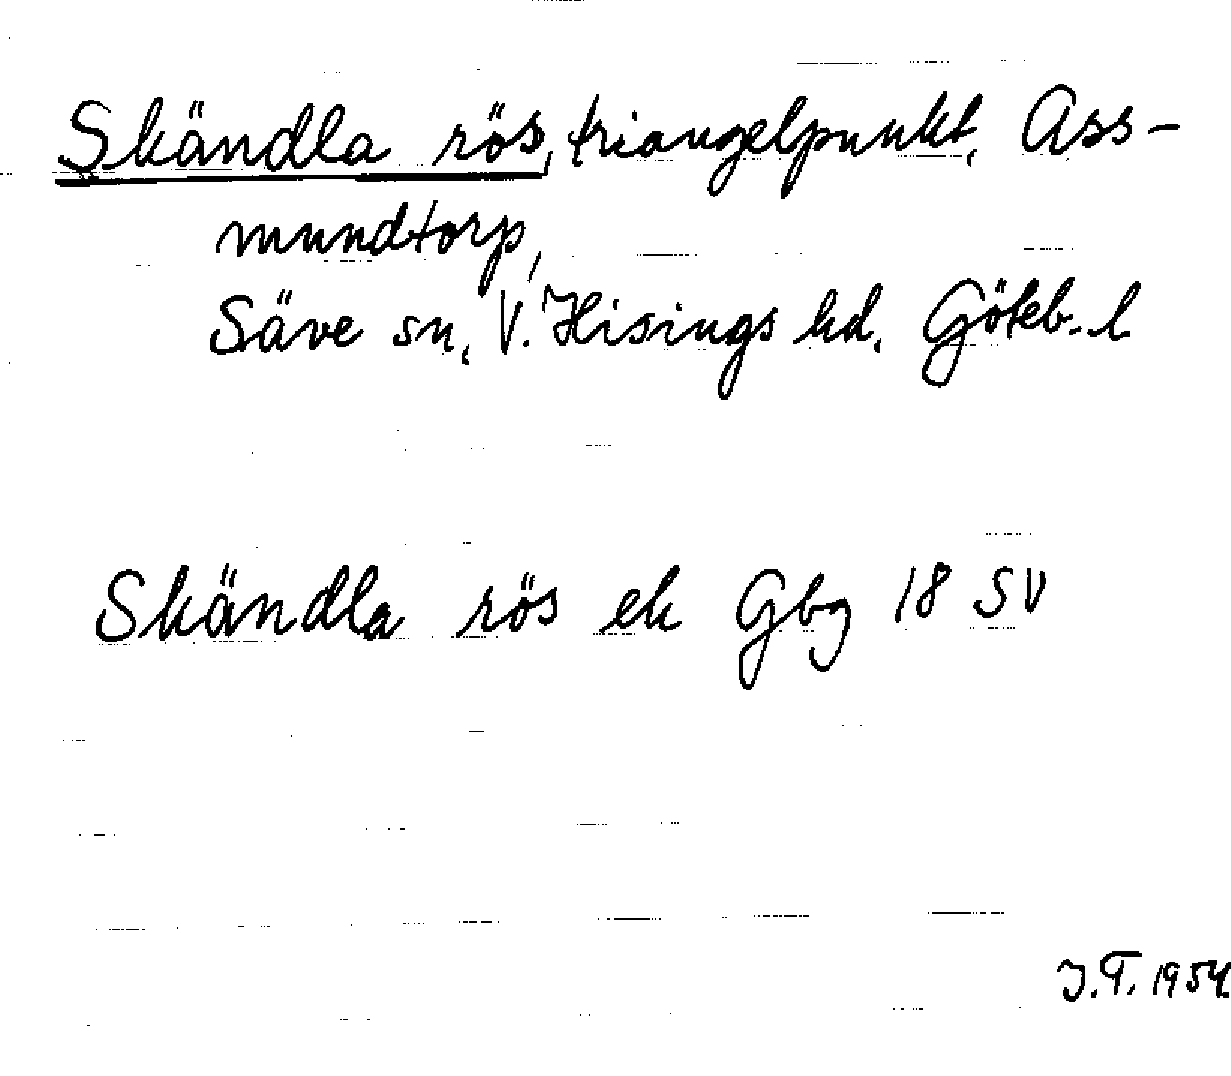 Skändla rös, triangelpunkt, Ass-
mundtorp,
Säve sn, V. Hisings hd. Göteb. l
Skändla rös ek Gbg 18 SV
J.T. 1954.